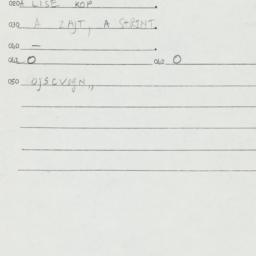 020A LISE KOP
030 A ZAJT, A STRINT
040 —
042 O 060 O
050 OJSCVOGN,,